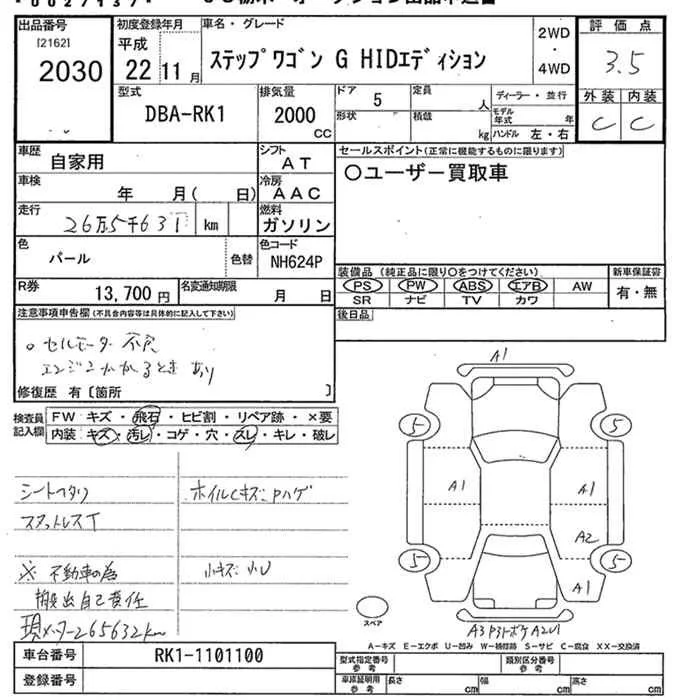 出品番号
[2162]
2030
初度登録年月
平成
22 11 月
車名・グレード
ステップワゴン G HIDエディション
2WD
・
4WD
評価点
3.5
外装 内装
C C
型式
DBA-RK1
排気量
2000
CC
ドア
5
定員
人
形状
積載
kg
ディーラー・並行
モデル年式 年
ハンドル 左・右
車歴
自家用
シフト
AT
車検
年 月( 日)
冷房
AAC
走行
26万5千631 km
燃料
ガソリン
色
パール
色替
色コード
NH624P
R券
13,700 円
名変通知期限
月 日
セールスポイント(正常に機能するものに限ります)
○ユーザー買取車
装備品 (純正品に限り○をつけてください)
PS PW ABS エアB AW
SR ナビ TV カワ
新車保証書
有・無
後日品
注意事項申告欄(不具合内容等は具体的に記入して下さい)
○ セルモーター不良
エンジンかかるときあり
修復歴 有〔箇所 〕
検査員記入欄
FW キズ・飛石・ヒビ割・リペア跡・×要
内装:キズ・汚レ・コゲ・穴・スレ・キレ・破レ
シートヘタリ
スタットレスT
※ 不動車の為
搬出自己責任
現メーター265632km
ホイルCキズ:Pハゲ
小キズ:小U
A1
5 5
A1 A1
A2
5 5
A1
スペア
A3 P3トボケ A2U1
A-キズ E-エクボ U-凹み W-補修跡 S-サビ C-腐食 XX-交換済
車台番号
RK1-1101100
登録番号
型式指定番号
参考
類別区分番号
参考
車庫証明用
参考
長さ cm
幅 cm
高さ cm